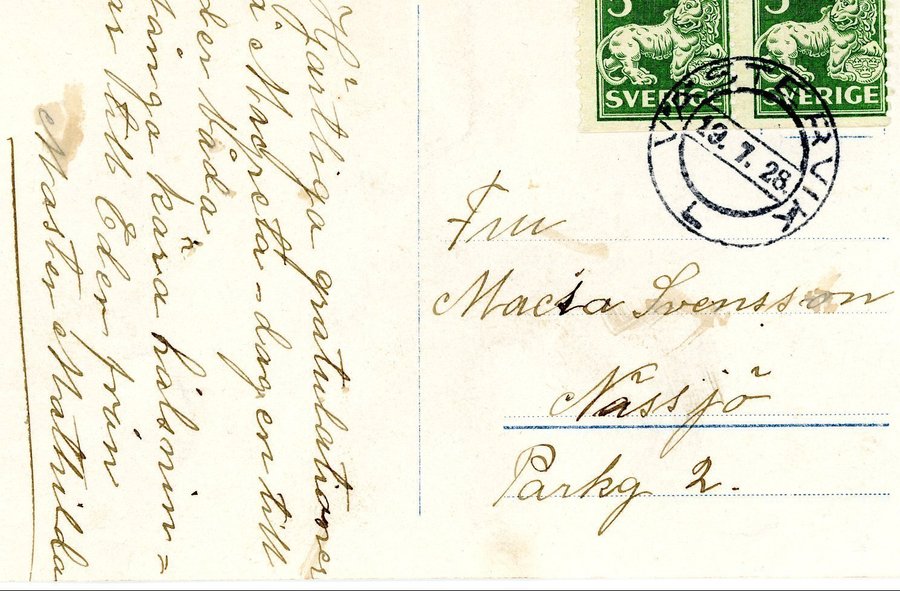 Hjärtliga gratulationer
å Margreta-dagen till
der båda
många kära hälsnin=
ar till Eder från
Moster Mathilda
5 5
SVERIGE SVERIGE
VÄSTERVIK 1
19.7.28
Fru
Maria Svensson
Nässjö
Parkg 2.